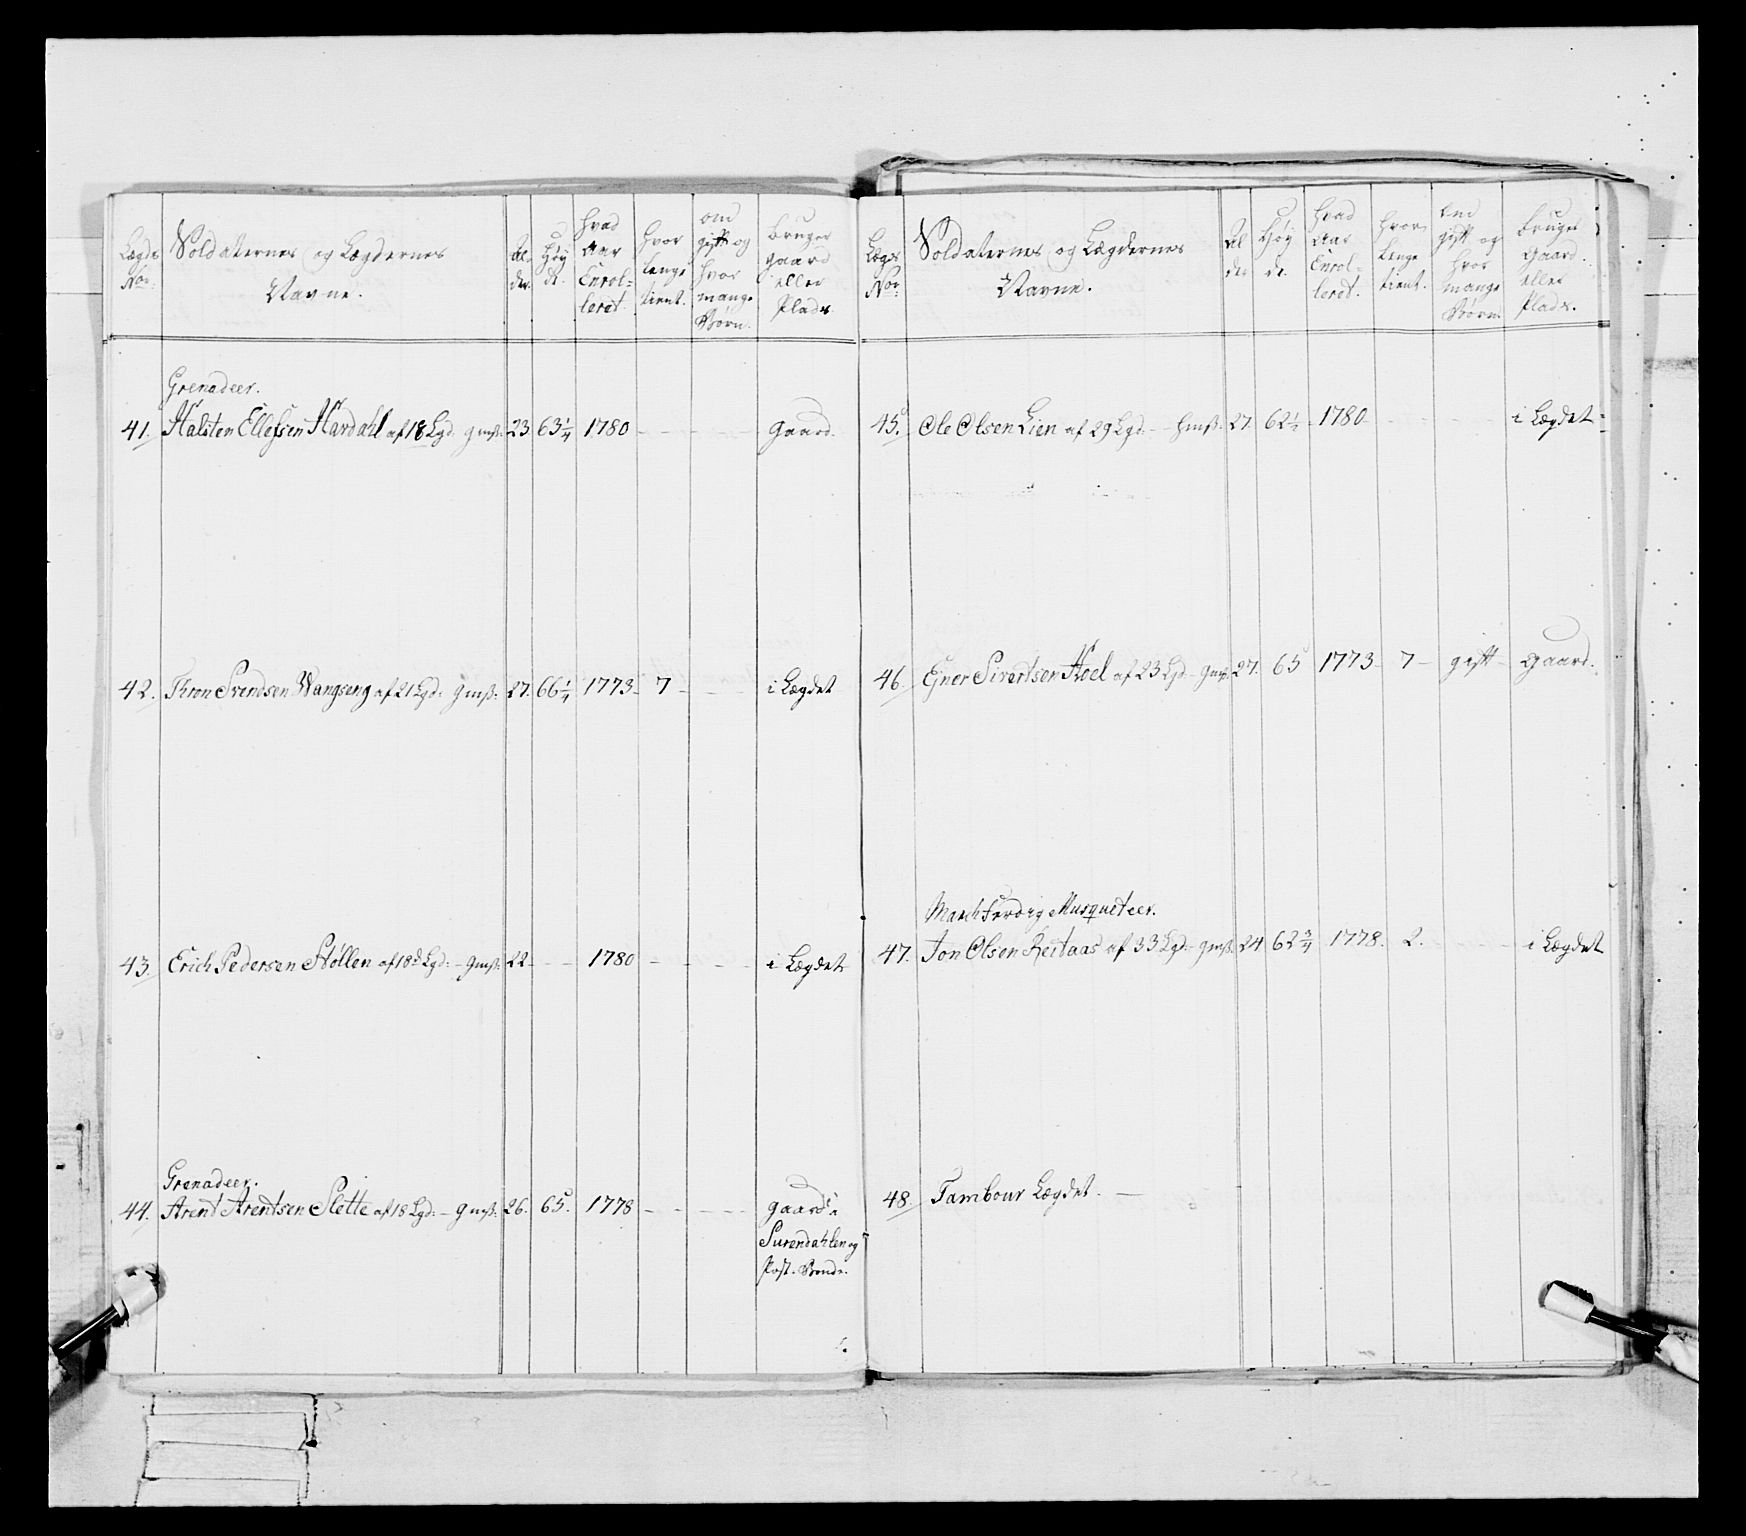 Lægds Nor:
Soldaternes og Lægdernes Navne.
Al der.
Høy de.
hvad Aar Enrol= leret.
hvor lenge tient.
om gift og hvor mange Børn.
bruger gaard eller Plads.
Grenadeer.
41. Halsten Ellefsen Hardahl af 18 Lgd: 23 63 1/4 1780 - - - - gaard.
42. Thron Svendsen Wangseng af 21 Lgd: 27. 66 1/4 1773 - 7 - - - i Lægdet
43. Erich Pedersen Støllen af 18d Lgd: 22 - - 1780 - - - - i Lægdet
Grenadeer.
44. Arent Arentsen Slette af 18 Lgd: 26. 65. 1778 - - - - gaard i
Surendahlen og
Post. Bonde.
Lægds Nor:
Soldaternes og Lægdernes Navne.
Al der.
Høy de.
hvad Aar Enrol= leret.
hvor lenge tient.
om gift og hvor mange Børn.
bruger Gaard. eller Plads.
45. Ole Olsen Lien af 29 Lgd: 27. 62 1/2 1780 - - - - i Lægdet
46. Ejner Sivertsen Hoel af 23 Lgd: 27. 65 1773 - 7 - gift - gaard.
March færdig Musqueteer.
47. Jon Olsen Reitaas af 33 Lgd: 24 62 3/4 1778. 2. - - - i Lægdet
48. Tambour Lægdet. -